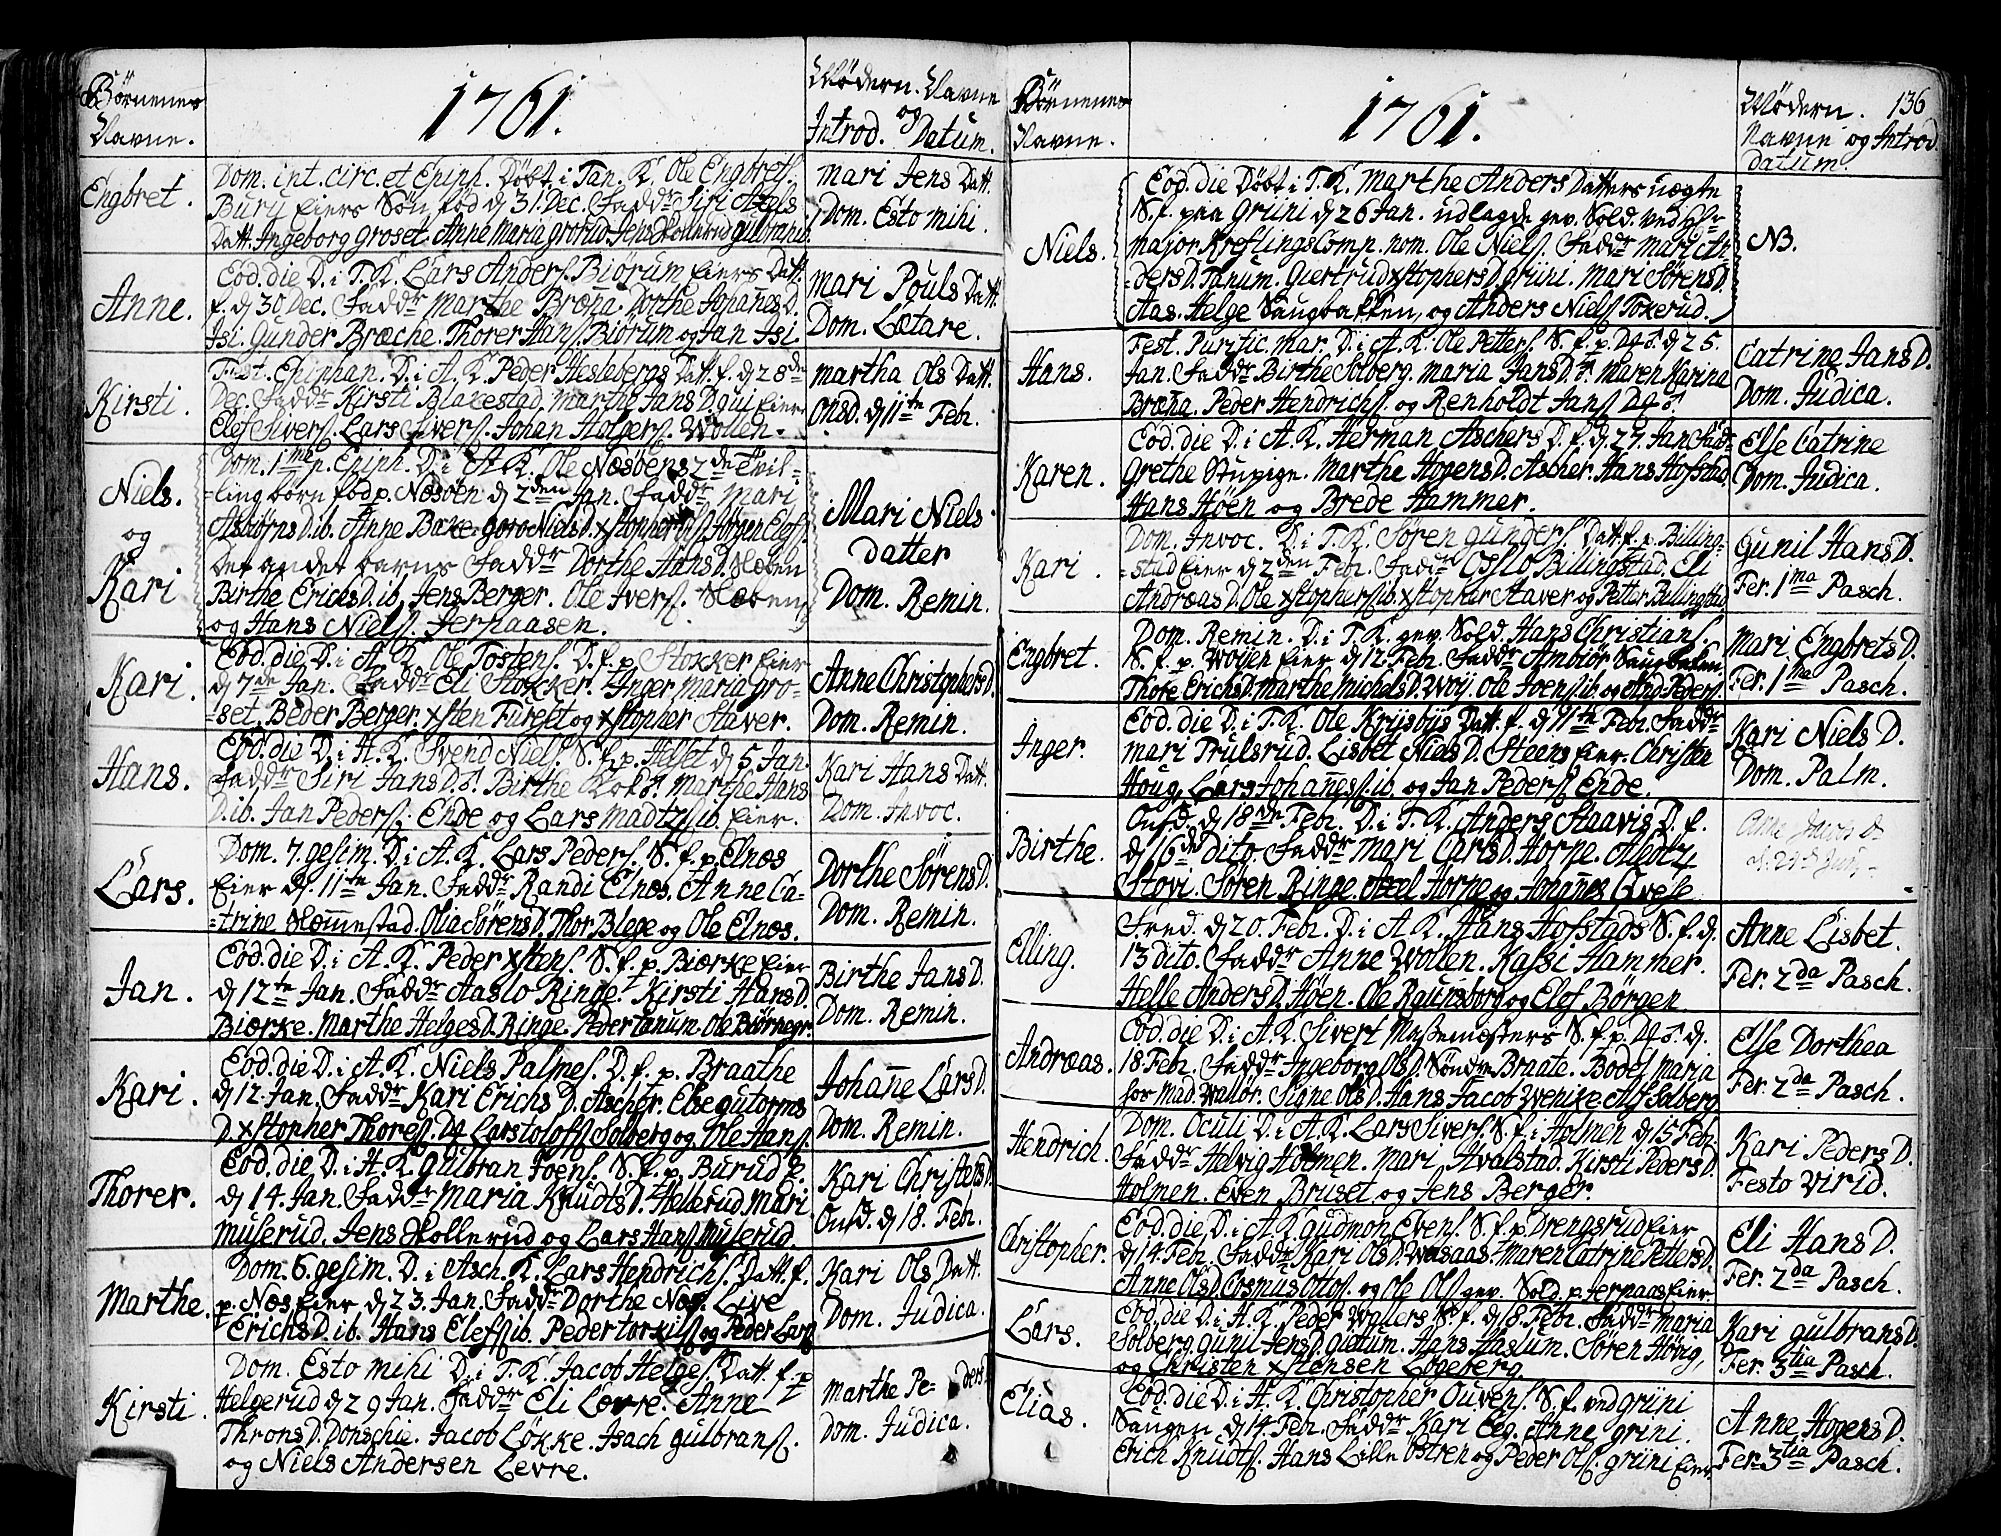 Börnenes
Navne.
1761.
Mödern. Navne
og
Introd. Datum.
Engbret.
Dom. int. circ. et Epiph. Döbt i Tan. K. Ole Engbretſ.
Bury Eiers Sön, föd d 31. Dec. Faddr Siri Axels
Datt. Ingeborg Groset. Anne Maria Grorud Jens Skollerud Gulbran ib.
Mari Jens Datt.
Dom. Esto mihi.
Anne.
Eod. die D. i T. K. Lars Anderſ. Biörum Eiers Datt.
f. d 30 Dec. Faddr Marthe Bræna. Dorthe Johannes D.
Isi. Gunder Bræche. Thorer Hanſ. Biörum og Jan Isi.
Mari Pouls Datt.
Dom. Lætare.
Kirsti.
Fest. Epiphan. D. i A. K. Peder Heslebergs Datt. f. d 28de
Dec. Faddr Kirsti Blakestad, Marthe Jans D. Gui Eier
Elef Siverſ. Lars Siverſ. Johan Holgerſ. Wollen.
Martha Ols Datt.
Onsd. d 11te Feb.
Niels.
og
Kari
Dom. 1ma p. Epiph. D. i A. K. Ole Næsöens 2de Tvil-
-ling börn föd p. Næsöen d 2den Jan. Faddr Mari
Asbiörns D. ib. Anne Bake. Goro Niels D. Xstopher Jörgen Elefſ.
Det andet barns Faddr Dorthe Hans D. Næsöen
Birthe Erichs D. ib. Jens Berger. Ole Iverſ. Næsöen
og Hans Nielſ. Jernaasen.
Mari Niels
datter
Dom. Remin.
Kari.
Eod. die D. i A. K. Ole Tostenſ. D. f. p. Stokker Eier
d 7de Jan. Faddr Eli Stokker. Inger Maria Gro-
-set. Beder Berger. Xsten Furuset og Xstopher Staver.
Anne Christophers D.
Dom. Remin.
Hans.
Eod. die D. i A. K. Svend Nielſ. S. f. p. Hilset d 5 Jan.
Faddr Siri Jans D. Birthe Kok. Marthe Hans
D. ib. Jan Pederſ. Ende og Lars Madtzſ ib. Eier.
Kari Hans Datt.
Dom. Invoc.
Lars.
Dom. 7. gesim. D. i A. K. Lars Pederſ. S. f. p. Elnæs
Eier d. 11te Jan. Faddr Randi Elnæs. Anne Ca-
-trine Næmmestad. Olia Sörens D. Thor Blege og Ole Elnæs.
Dorthe Sörens D.
Dom. Remin.
Jan.
Eod. die D. i A. K. Peder Xstenſ. S. f. p. Biørke Eier
d 12te Jan. Faddr Aaslo Ringe. Kirsti Hans D.
Biørke. Marthe Helges D. Ringe. Peder Tanum. Ole Biörnegr.
Birthe Jans D.
Dom. Remin.
Kari.
Eod. die D. i A. K. Niels Palmeſ. D. f. p. Braathe
d 12. Jan. Faddr Kari Erichs D. Ascher. Else Gutorms
D. Xstopher Thoreſ. Lars tolofſ Solberg og Ole Hanſ.
Johanne Lars D.
Dom. Remin.
Thorer.
Eod. die D. i A. K. Gulbran Joenſ. S. f. p. Burud E.
d 14. Jan. Faddr Maria Knudts D. Hellerud. Mari
Muserud. Jens Skollerud og Lars Hanſ Muserud.
Kari Christens D.
Onsd. d 18. Feb.
Marthe.
Dom. 6. gesim. D. i Asch. K. Lars Hendrichſ. Datt. f.
p. Næs Eier d 23. Jan. Faddr Dorthe Næs. Live
Erichs D. ib. Hans Elefſ ib. Peder torkilſ og Peder Larſ
Kari Ols Datt.
Dom. Judica.
Kirsti.
Dom. Esto mihi D. i T. K. Jacob Helgeſ. Datt. f. p
Helgerud d 29 Jan. Faddr Eli Levre. Anne
Throns D. Donschie. Jacob Løkke. Isach Gulbranſ.
og Niels Andersen Levre.
Marthe Pe- ders
Dom. Judica.
Börnenes
Navne.
1761.
Mödern. 136
Navne og Introd.
datum.
Niels.
Eod. die Döbt i T. K. Marthe Anders Datters uægte
S. f. paa Griini d 26 Jan. udlagde gev. Sold. ved Hr
Major Kreftings Comp. nom. Ole Nielſ. Faddr Mari An-
-ders D. Tanum. Giertrud Xstophers D. Griini. Mari Sörens D.
Aas. Helge Saugbakken, og Anders Nielſ Tokerud.
NB.
Hans.
Fest. Purific. Mar. D. i A. K. Ole Petterſ. S. f. p. d 25.
Jan. Faddr Birthe Solberg. Maria Jans D. Maren Karina
Bræna. Peder Hendrichſ. og Renholdt Janſ
Catrine Jans D.
Dom. Judica.
Karen.
Eod. die D. i A. K. Herman Aschers D. f. d. 27. Jan Fadd-
Grethe Stupige. Marthe Hogens D. Ascher. Hans Hofstad.
Hans Höen og Brede Hammer.
Else Catrine
Dom. Judica.
Kari.
Dom. Invoc. D. i T. K. Sören Gunderſ. Datt. f. p. Billing-
-stad Eier d 2den Feb. Faddr Oslo Billingstad. Eli
Andræas D. Ole Xstopherſ ib. Xstopher Staver og Petter Billingstad
Gunil Hans D.
Fer. 1ma Pasch.
Engbret.
Dom. Remin. D. i T. K. gev. Sold. Hans Christianſ.
S. f. p. Wöyen Eier d 12. Feb. Faddr Ambiör Saugbaken
Thore Erichs D. Marthe Michels D. Woy. Ole Joenſ ib. og Pederſ.
Mari Engbrets D.
Fer. 1ma Pasch.
Inger.
Eod. die D. i T. K. Ole Krysbys Datt. f. d 11te Feb. Faddr
Mari Trulsrud. Lisbet Niels D. Steens Eier. Christen
Houg, Lars Johannesſ. ib. og Jan Pederſ Ende.
Kari Niels D.
Dom. Palm.
Birthe.
Onsd. d 18de Feb. D. i T. K. Anders Staavis D. f.
d 16de Dito. Faddr Mari Carls D. Horne. Aledtz
Stovi. Sören Ringe. Axel Horne og Johannes Qvese
Anne D
d. 29
Elling.
Fred. d 20. Feb. D. i A. K. Hans Hofstads S. f. d.
13 dito. Faddr Anne Wollen. Kaſsi Hammer.
Helle Anders D. Höen. Ole Ravnsborg og Elef Börgen
Anne Lisbet.
Fer. 2da Pasch.
Andræas.
Eod. die D. i A. K. Sivert Maſsemesters S. f. p. d.
18. Feb. Faddr Ingeborg Ols D. Söndre Braate. Bodel Maria
for Mad. Wallör. Signe Ols D. Hans Jacob Wenike Alf Solberg
Else Dorthea
Fer. 2da Pasch.
Hendrich.
Dom. Oculi D. i A. K. Lars Siverſ. S. f. i Holmen d 15 Feb.
Faddr Helvig Holmen. Mari Hvalstad. Kirsti Peders D.
Holmen. Even Briset og Jens Berger.
Kari Peders D.
Festo Virid.
Christopher.
Eod. die D. i A. K. Gudmon Evenſ. S. f. p. Drengsrud Eier
d 14. Feb. Faddr Kari Ols D. Wasaas. Maren Catrine Petters D.
Anne Ols D. Cosmus Ottoſ. og Ole Olſ gev. Sold. p. Jernaas Eier
Eli Hans D.
Fer. 2da Pasch.
Lars.
Eod. die D. i A. K. Peder Wallers S. f. d 18. Feb. Faddr Maria
Solberg. Gunil Jens D. Gutum. Hans Haslum. Sören Hövig,
og Christen Xstensen Løgeberg.
Kari Gulbrans D.
Fer. 3tia Pasch.
Elias.
Eod. die D. i A. K. Christopher Ouvenſ. S. f. ved Griini
Saugen d 14. Feb. Faddr Kari Eeg. Anne Grini.
Erich Knudtſ. Hans Lille Ostren og Peder Olſ. Griini Eier
Anne Hogens D.
Fer. 3tia Pasch.